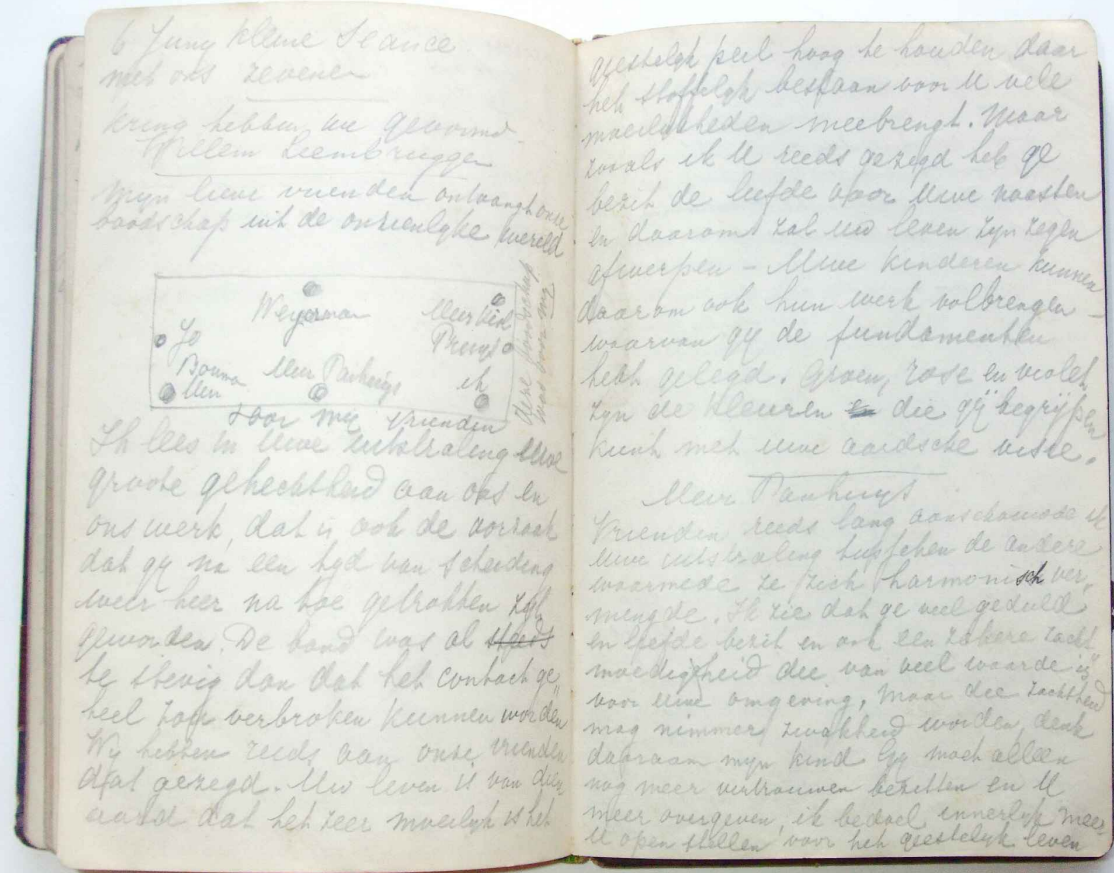 6 Juny kleine Seance
met ons zevenen
kring hebben we gevormd
Willem
Myn lieve vrienden ontvangt onze
boodschap uit de onzienlyke wereld
Weyerman
Jo
Bouma
Meur Panhuys
ik
deze boodschap
was voor my
voor my vrienden
Ik lees in Uwe uitstraling Uwe
groote gehechtheid aan ons en
ons werk, dat is ook de oorzaak
dat gy na een tyd van scheiding
weer heer na toe getrokken zyt
geworden. De band was al steeds
te stevig dan dat het contact ge„
heel zou verbroken kunnen worden
Wy hebben reeds aan onze vrienden
dat gezegd. Uw leven is van dien
aard dat het zeer moeilyk is het
geestelyk peil hoog te houden daar
het stoffelyk bestaan voor U vele
moeilykheden meebrengt. Maar
zooals ik U reeds gezegd heb ge
bezit de liefde voor Uwe naasten
en daarom zal uw leven zyn zegen
afwerpen – Uwe kinderen kunnen
daarom ook hun werk volbrengen –
waarvan gy de fundamenten
hebt gelegd. Groen, rose en violet,
zyn de kleuren die gij begrijpen
kunt met uwe aardsche visie.
Meur Panhuys
Vrienden reeds lang aanschouwde ik
Uwe uitstraling tusschen de andere
waarmede ze zich harmonisch ver„
mengde. Ik zie dat ge veel geduld
en liefde bezit en ook een zekere zacht„
moedigheid die van veel waarde is
voor Uwe omgeving, maar die zachtheid
mag nimmer zwakheid worden, denk
daaraan myn kind Gy moet alleen
nog meer vertrouwen bezitten en U
meer overgeven, ik bedoel innerlyk meer
U open stellen voor het geestelyk leven